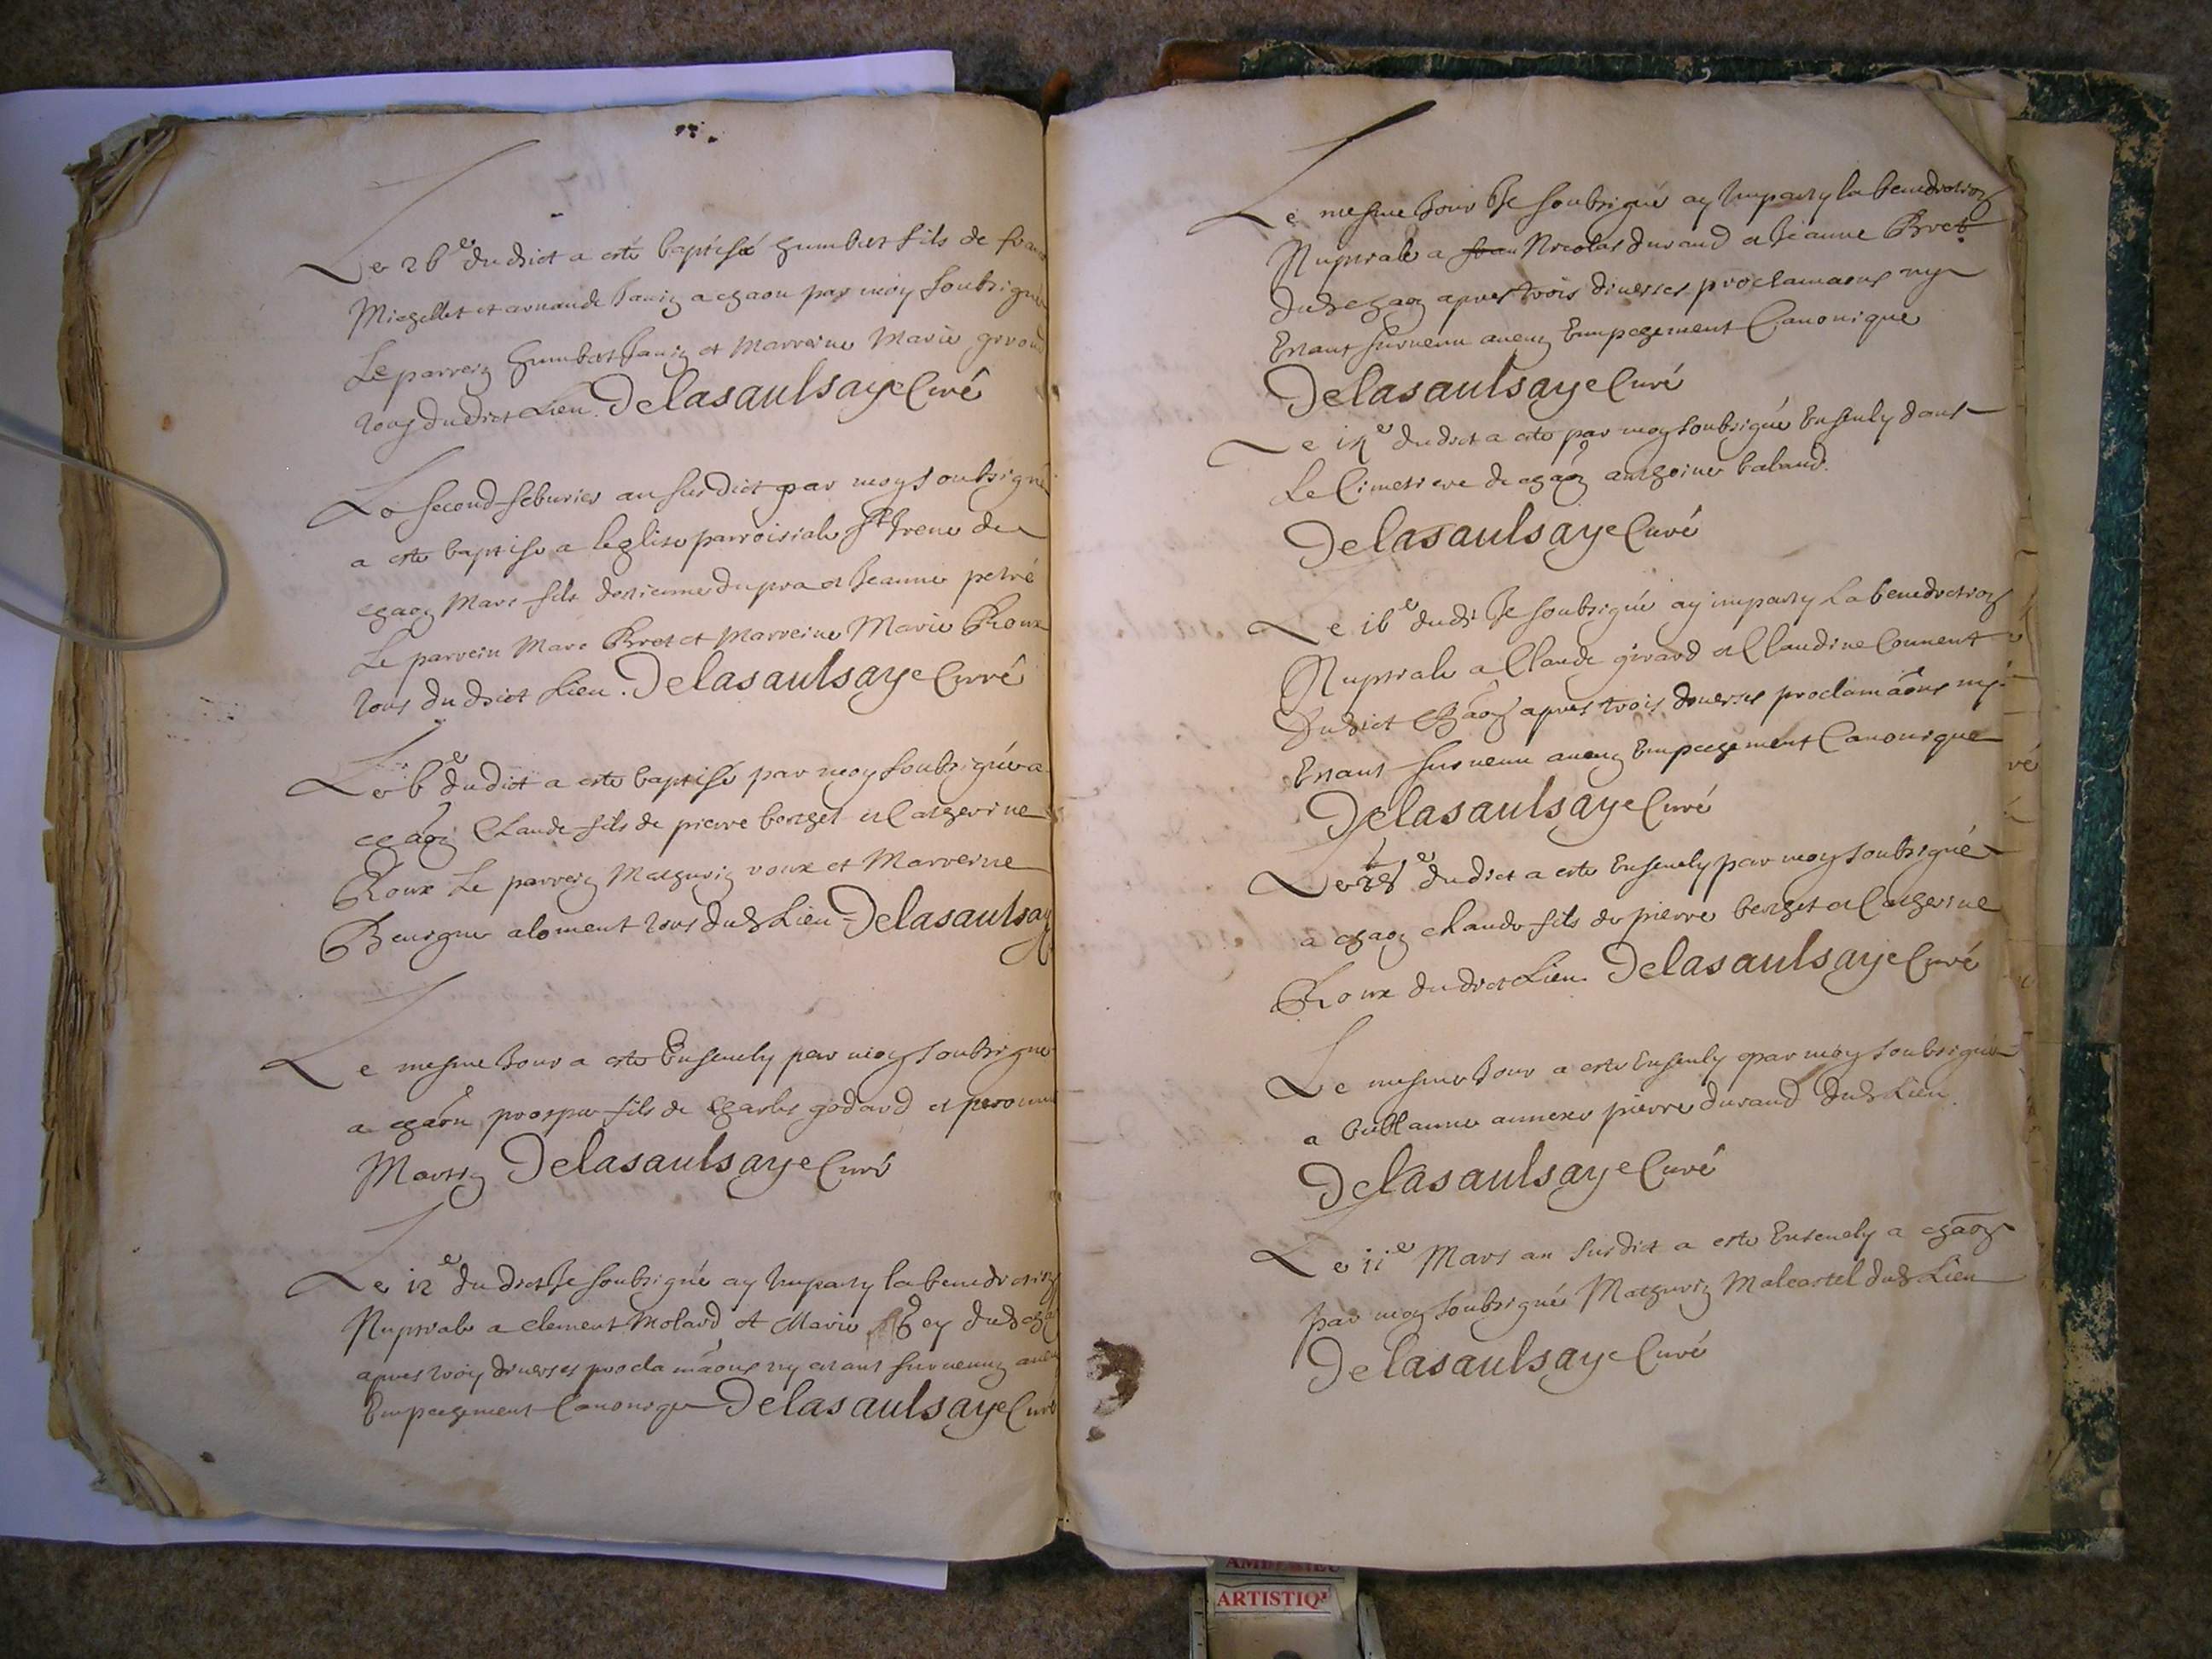 Le 26e dudict a esté baptisé humbert fils de fran
Michellet et arnaude Janin a chaon par moy soubsigné
Le parrein humbert Janin et Marreine Marie giroud
tous dudict Lieu. Delasaulsaye Curé
Le second feburier an susdict par moy soubsigné
a este baptise a leglise parroisiale St Irene de
chaon Marc fils destienne dupra et Jeanne petré
Le parrein Marc Bret et Marreine Marie Roux
tous dudict Lieu. Delasaulsaye Curé
Le 6e dudict a este baptisé par moy soubsigné a
chaon Claude fils de pierre berthet et Catherine
Roux Le parrein Mathurin roux et Marreine
Benigne aloment tous dud Lieu Delasaulsay
Le mesme Jour a este Ensevely par moy soubsigné
a chaon prosper fils de Charles godard et peronne
Martin Delasaulsaye Curé
Le 12e dudict Je soubsigné ay Imparty la benediction
Nuptiale a clement Molard et Marie Bey dud
apres trois diverses proclamaons ny estant survenu aucun
Empechement Canonique Delasaulsaye Curé
Le mesme Jour Je soubsigné ay Imparty la benediction
Nuptiale a Nicolas durand et Jeanne Bret
dud chaon apres trois diverses proclamaons ny
Estant survenu aucun Empechement Canonique
Delasaulsaye Curé
Le dudict a este par moy soubsigné Ensevly dans
Le Cimetiere de chaon anthoine baland.
Delasaulsaye Curé
Le 16e dudi Je soubsigné ay imparty La benediction
Nuptiale a Claude girard et Claudine Convent
dudict Chaon apres trois diverses proclamaons ny
Estant survenu aucun Empechement Canonique
Delasaulsaye Curé
Le dudict a este Ensevely par moy soubsigné
a chaon claude fils de pierre berthet et Catherine
Roux dudict Lieu Delasaulsaye Curé
Le mesme Jour a este Ensevly par moy soubsigné
a annexe pierre durand dud Lieu.
Delasaulsaye Curé
Le 11e Mars an susdict a este Ensevely a chaon
par moy soubsigné Mathurin Malcastel dud Lieu
Delasaulsaye Curé
ARTISTIQ